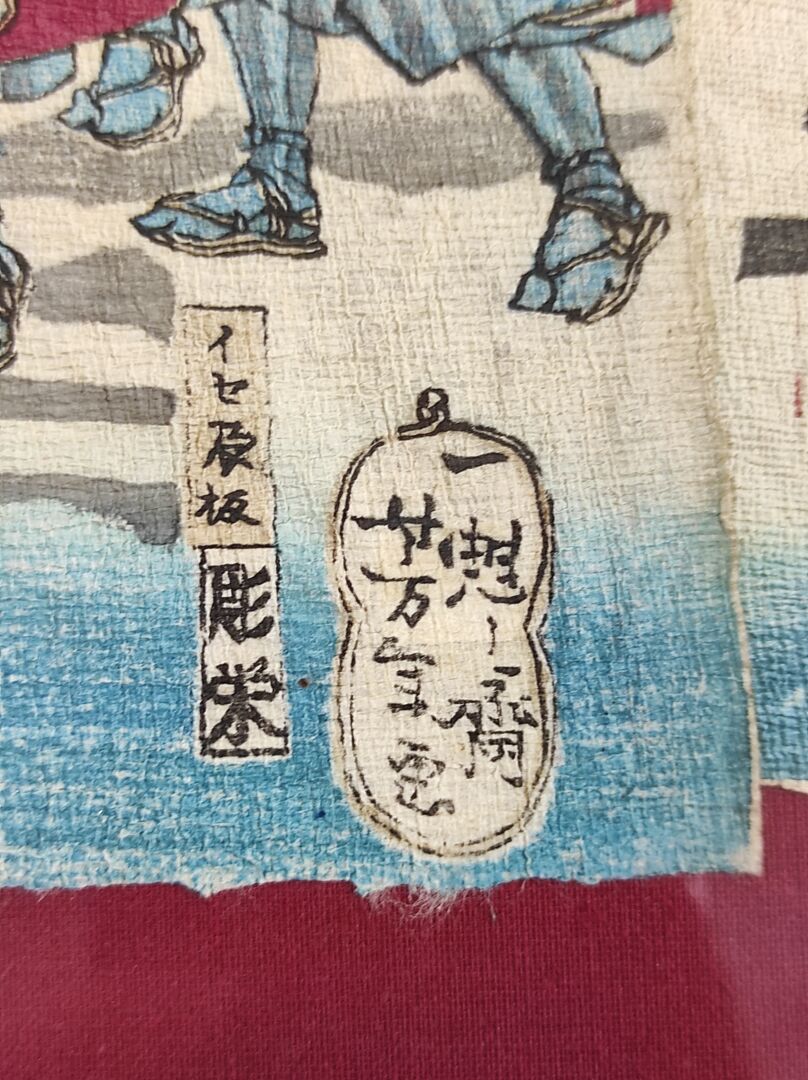 一魁齋
芳年画
イセ辰板
彫栄